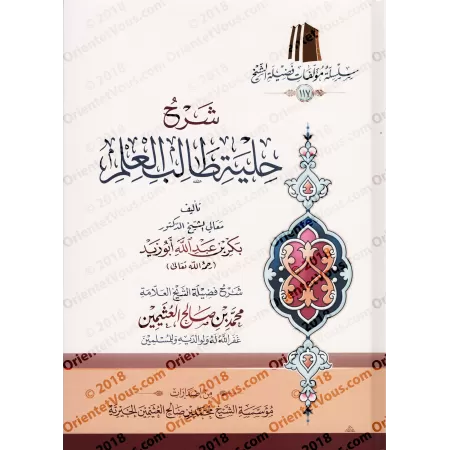 سلسلة مؤلفات فضيلة الشيخ
١١٧
شرح
حلية طالب العلم
تأليف
معالي الشيخ الدكتور
بكر بن عبد الله أبو زيد
(رحمه الله تعالى)
شرح فضيلة الشيخ العلامة
محمد بن صالح العثيمين
غفر الله له ولوالديه وللمسلمين
من إصدارات
مؤسسة الشيخ محمد بن صالح العثيمين الخيرية
© 2018
OrientetVous.com